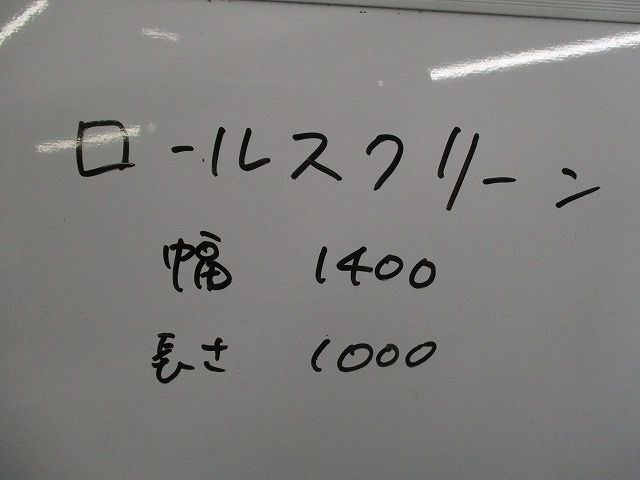 ロールスクリーン
幅 1400
長さ 1000